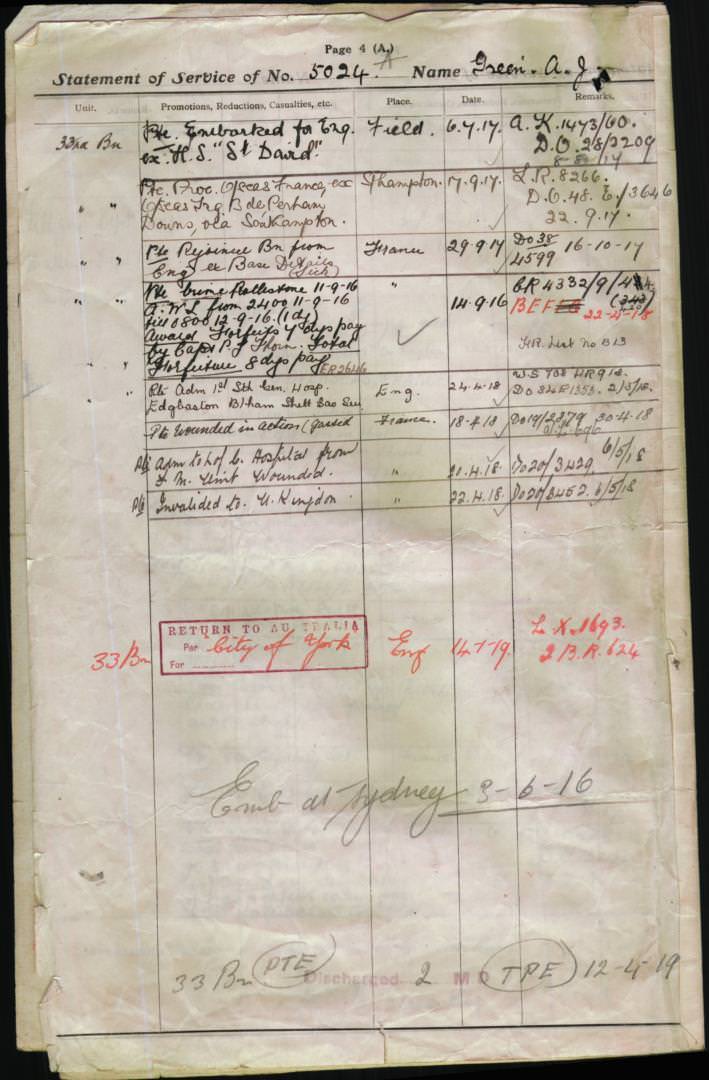 Page 4 (A.)
Statement of Service of No. 5024 A Name Green. A. J.
Unit. Promotions, Reductions, Casualties, etc. Place. Date. Remarks.
33rd Bn Pte. Embarked for Eng. Field. 6.7.17. A. K. 1473/60.
ex. H.S. "St David." D.O. 28/2209
Pte. Proc. O/seas France ex Sthampton. 17.9.17. L.R. 8266.
O/seas Trg B de Perham D.O. 48. E/3646
Downs, via Southampton. 22.9.17.
" " Pte Rejoined Bn from France 29.9.17 DO 38 16-10-17
Eng ex Base Details 4599
(Sick)
" " Pte Rollestone 11-9-16 " 14.9.16 4332/9/
A.W.L from 2400 11-9-16 BEF 22-4-18
till 0800 12-9-16. (1 dy)
Award Forfeits 7 dys pay
by Capt P. J. Thorn. Total HR. List No B13
" " Forfeiture 8 dys pay ER 2646
" Pte Adm 1st Sth Gen. Hosp. Eng. 24.4.18 W.S. HR 912.
Edgbaston B'ham Do 34 E 1353. 2/5/18.
Pte Wounded in action (gassed France. 18.4.18 Do 19/2379 30.4.18
Pte Adm to Hospital from " 20.4.18. Do 20/3429 6/5/18
Unit Wounded.
Pte Invalided to U. Kingdon. " 22.4.18. Do 20/3452. 6/5/18
RETURN TO AUSTRALIA
33 Bn Per City of York Eng 14-1-19. L X 1693.
For 2 B.R. 624
Emb at Sydney 3-6-16
33 Bn PTE Discharged 2 M D TPE 12-4-19